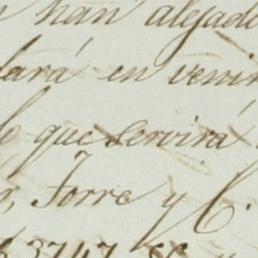 han alejado
dará en venir
que servirá
Torre y C.
3747